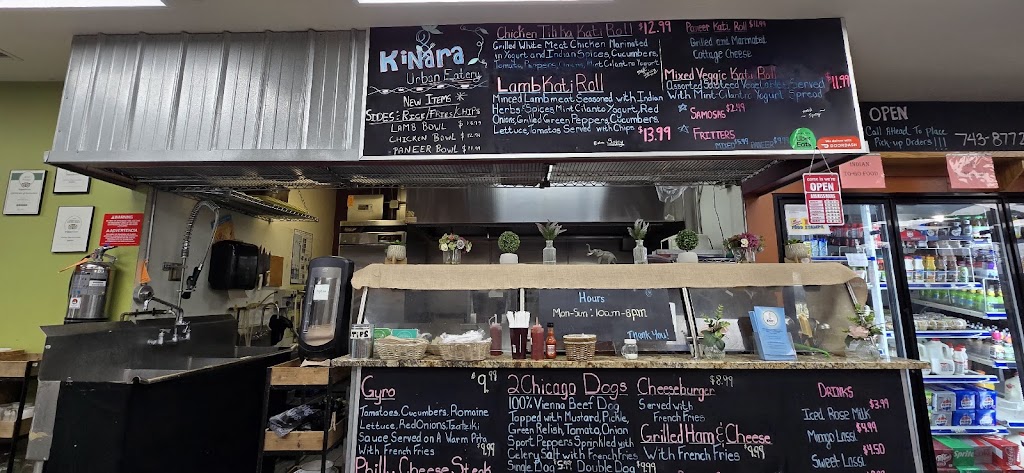 KiNara
Urban Eatery
NEW ITEMS *
SIDES: RICE/FRIES/CHIPS
LAMB BOWL
CHICKEN BOWL
PANEER BOWL
Chicken Tikka Kati Roll $12.99
Grilled White Meat Chicken Marinated
in Yogurt and Indian Spices, Cucumbers,
Tomato, Peppers, Onions, Mint Cilantro Yogurt
Lamb Kati Roll
Minced Lamb meat Seasoned with Indian
Herbs & Spices, Mint Cilanto Yogurt, Red
Onions, Grilled Green Peppers, Cucumbers
Lettuce, Tomatos Served with Chips $13.99
Paneer Kati Roll
Grilled and Marinated
Cottage Cheese
Mixed Veggie Kati Roll $11.99
Assorted Sauteed Vegetables Served
With Mint-Cilantro Yogurt Spread
Samosas $2.49
Fritters
Uber Eats
DOORDASH
OPEN
Call Ahead To Place
Pick-up Orders!!! 743-8772
INDIAN
COME IN WE'RE
OPEN
WARNING
ADVERTENCIA
Hours
Mon-Sun: 10am-8pm
Thank You!
TIPS
Gyro $9.99
Tomatoes, Cucumbers, Romaine
Lettuce, Red Onions, Tzatziki
Sauce Served on A Warm Pita
With French Fries
Philly Cheese Steak
2 Chicago Dogs
100% Vienna Beef Dog
Topped with Mustard, Pickle,
Green Relish, Tomato, Onion
Sport Peppers Sprinkled with
Celery Salt with French Fries
Single Dog 5.99 Double Dog $9.99
Cheeseburger $8.99
Served with
French Fries
Grilled Ham & Cheese
With French Fries $9.99
DRINKS
Iced Rose Milk $3.99
Mango Lassi $4.99
Sweet Lassi $4.50
Sprite